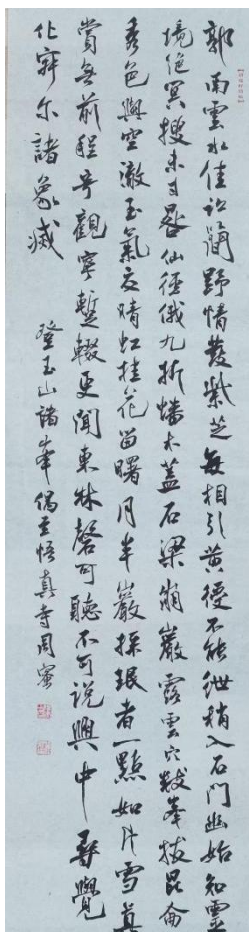 郭南雲水佳訟簡野情發紫芝每相引黃綬不能紲稍入石門幽始知靈
境絕冥搜未寸晷仙徑俄九折蟠木蓋石梁崩巖露雲穴數峯拔昆侖
秀色與空澈玉氣交晴虹桂花留曙月半巖採珉者一點如片雪真
賞無前程奇觀寧暫輟更聞東林磬可聽不可說興中尋覺
化寂尔諸象滅
登玉山諸峯偶至悟真寺周